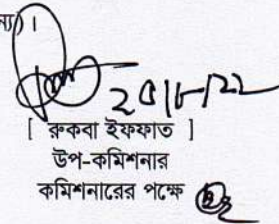 ন্য)।
[ রুকবা ইফফাত ]
উপ-কমিশনার
কমিশনারের পক্ষে